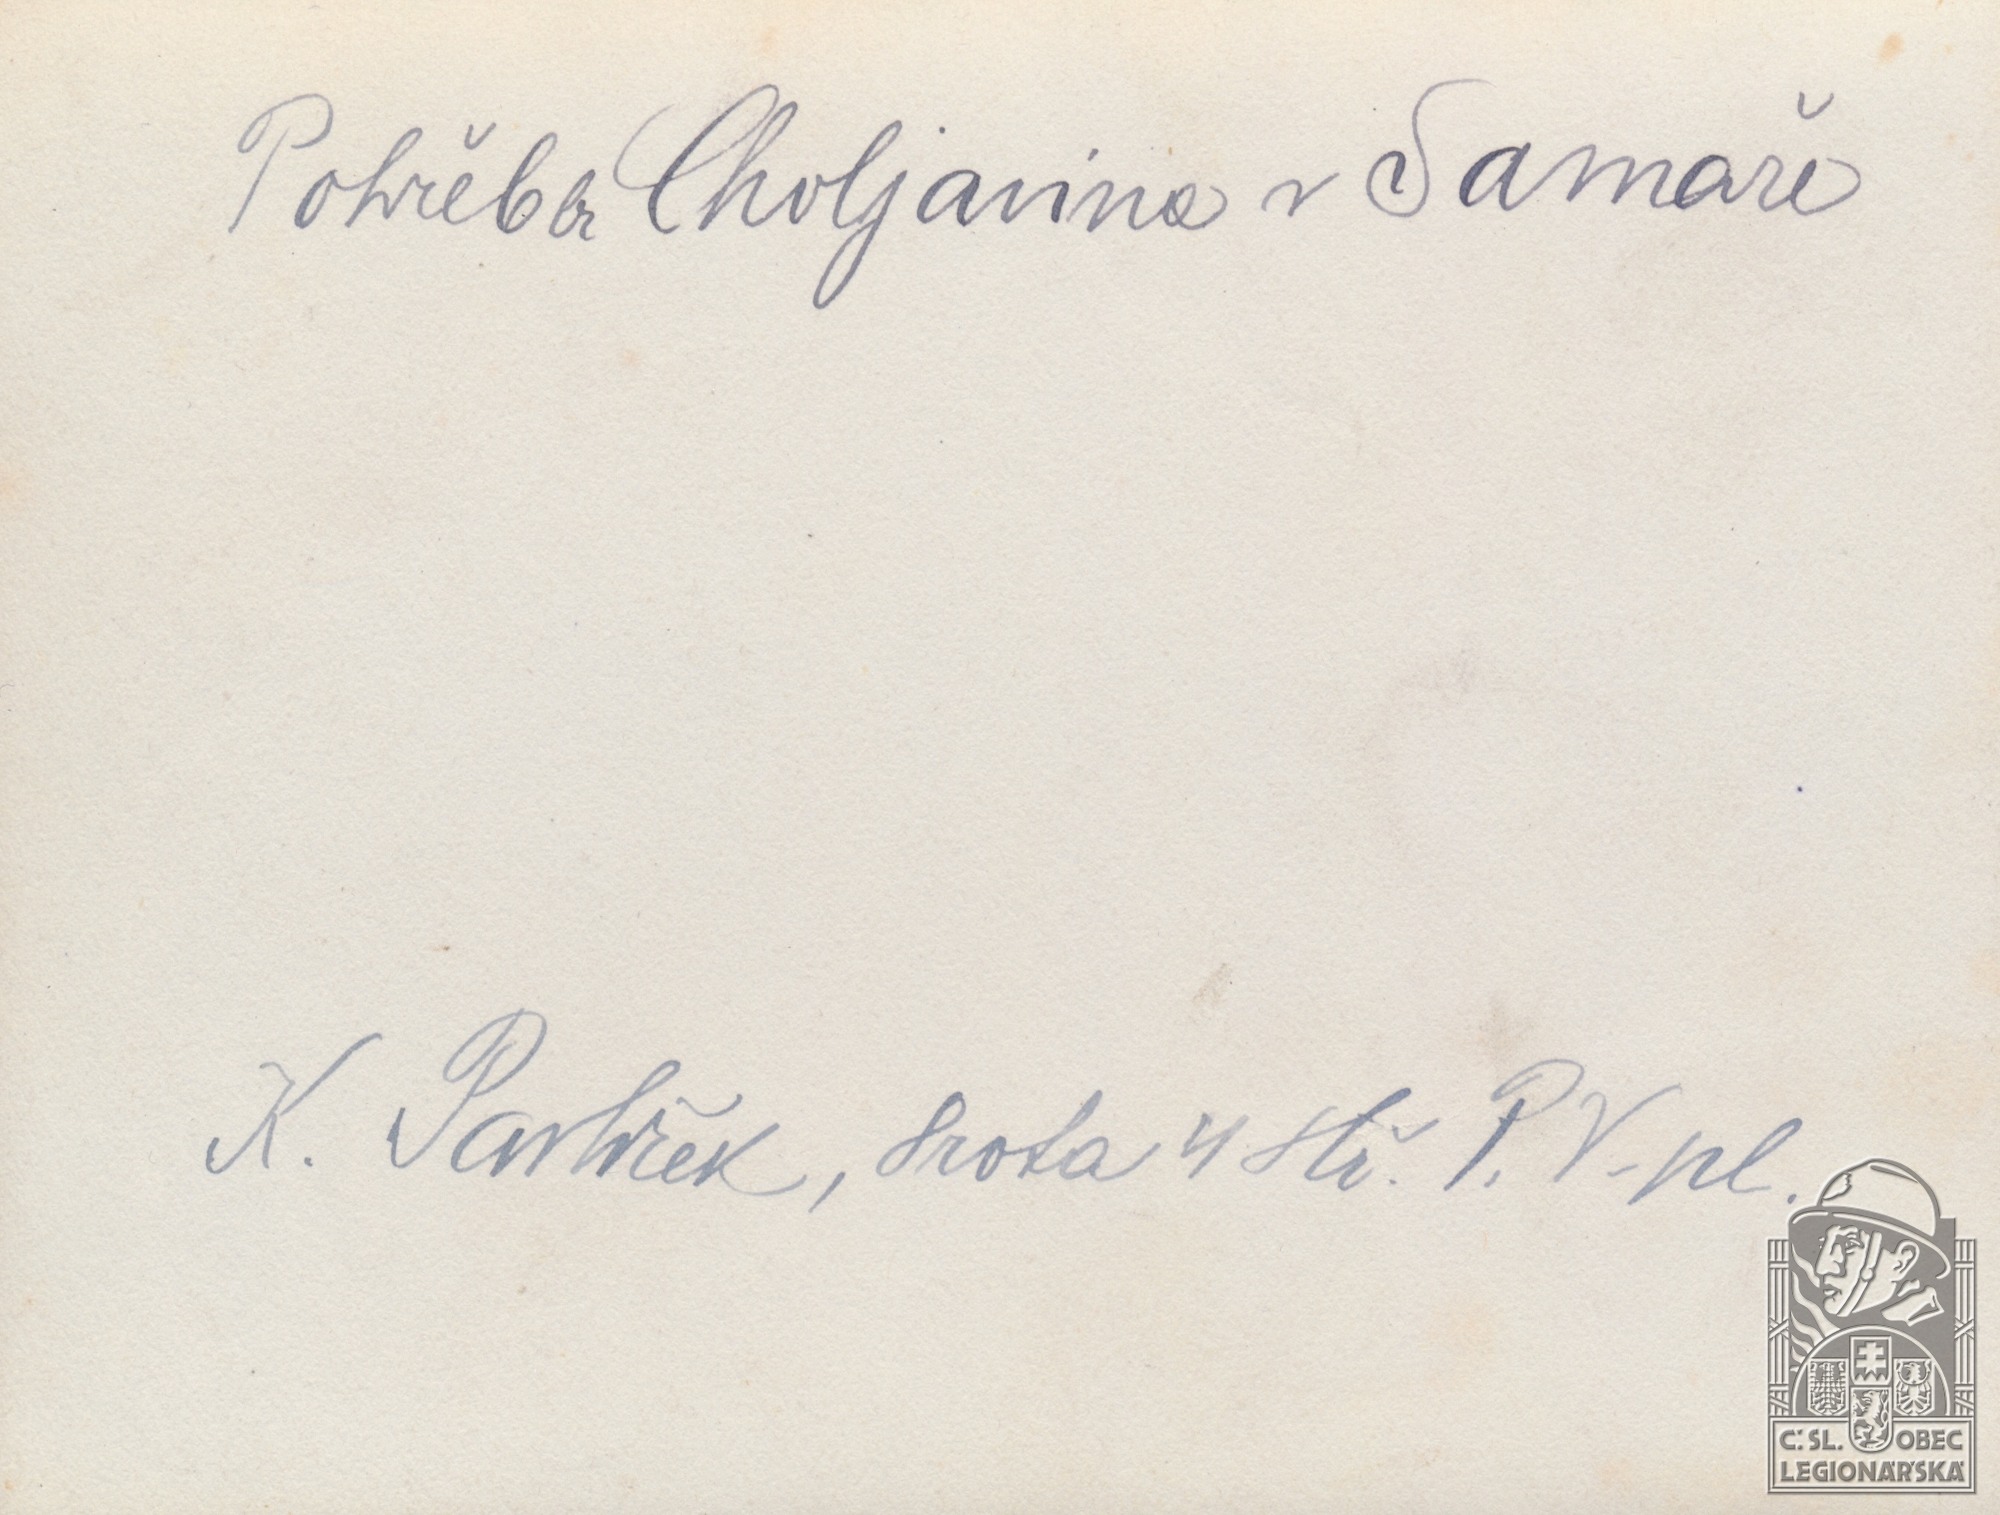 Pohřeb br Choljavina v Samaře
K. Pavlíček, srota 4 stř. P. V - pl.
Č. SL. OBEC
LEGIONÁŘSKÁ